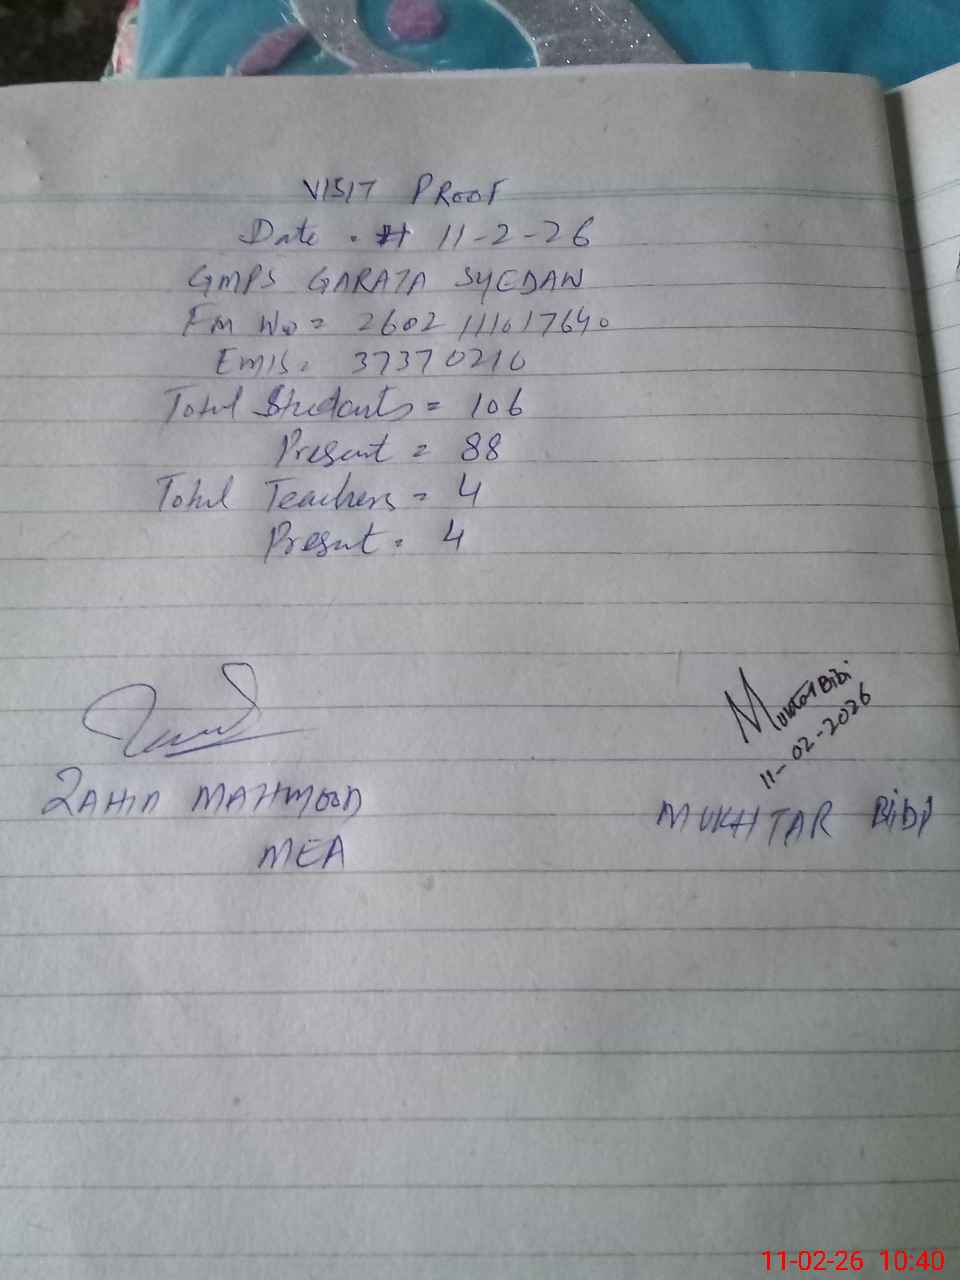 VISIT PROOF
Date . # 11-2-26
GMPS GARATA SYEDAN
Fm No = 2602111017640
EMIS. 37370210
Total Students = 106
Present = 88
Total Teachers = 4
Present = 4
Mukhtar Bibi
11-02-2026
ZAHID MAHMOOD
MEA
MUKHTAR BiBi
11-02-26 10:40